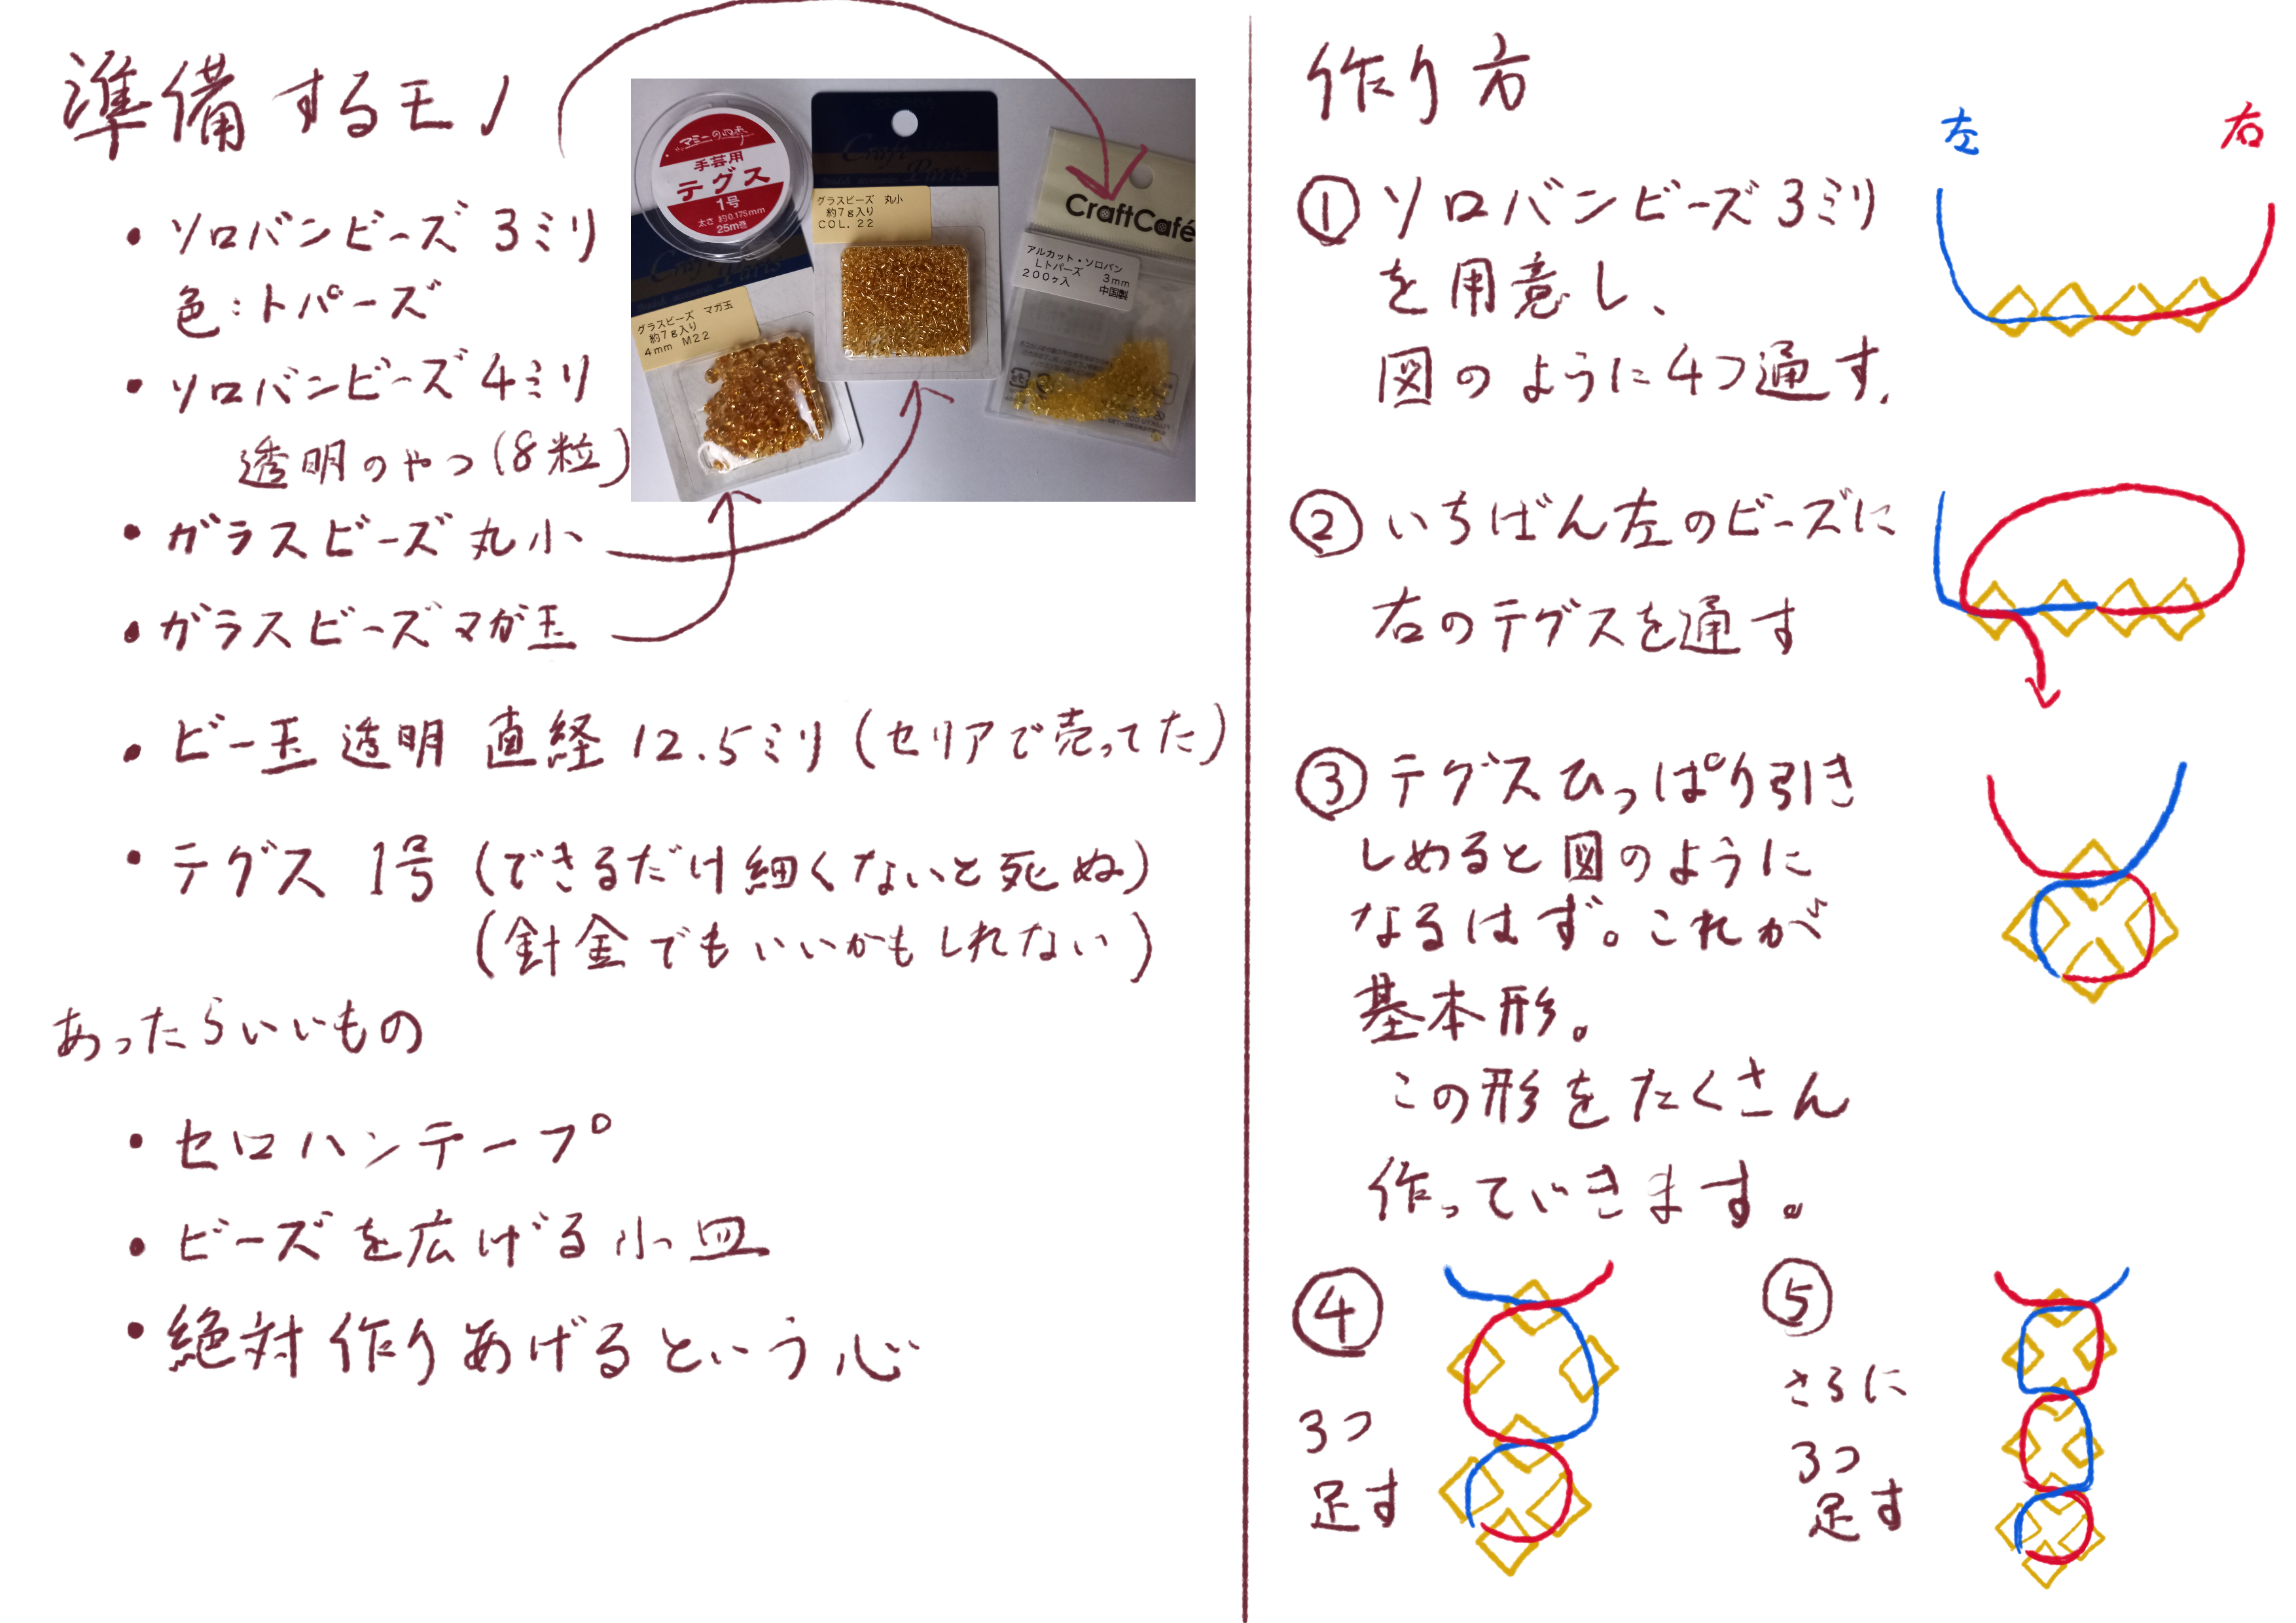 準備するモノ
・ソロバンビーズ 3ミリ
色：トパーズ
・ソロバンビーズ4ミリ
透明のやつ(8粒)
・ガラスビーズ 丸小
・ガラスビーズマガ玉
・ビー玉 透明 直経 12.5ミリ (セリアで売ってた)
・テグス 1号 (できるだけ細くないと死ぬ)
(針金でもいいかもしれない)
あったらいいもの
・セロハンテープ
・ビーズを広げる小皿
・絶対作りあげるという心
手芸用
テグス
1号
太さ 約0.175mm
25m巻
グラスビーズ 丸小
約7g入り
COL. 22
Craft
Parts
グラスビーズ マガ玉
約7g入り
4mm M22
CraftCafé
アルカット・ソロバン
Lトパーズ 3mm
200ケ入 中国製
作り方
左 右
① ソロバンビーズ 3ミリ
を用意し、
図のように4つ通す.
② いちばん左のビーズに
右のテグスを通す
③ テグスひっぱり引き
しめると図のように
なるはず。これが
基本形。
この形をたくさん
作っていきます。
④
3つ
足す
⑤
さらに
3つ
足す